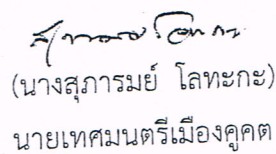 (นางสุภารมย์ โลทะกะ)
นายเทศมนตรีเมืองคูคต